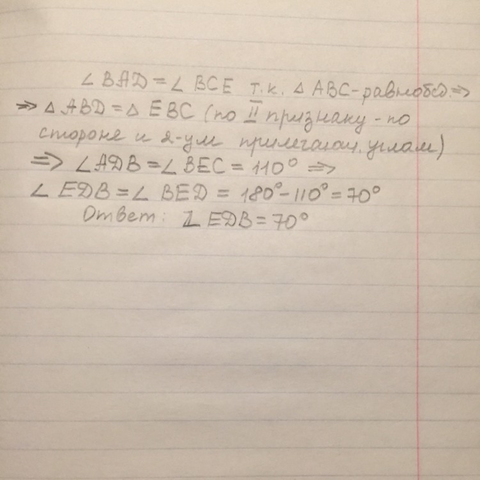 ∠ BAD = ∠ BCE т.к. △ ABC - равнобед. ⇒
⇒ △ ABD = △ EBC (по II признаку - по
стороне и 2-ум прилегающ. углам)
⇒ ∠ ADB = ∠ BEC = 110° ⇒
∠ EDB = ∠ BED = 180° - 110° = 70°
Ответ: ∠ EDB = 70°